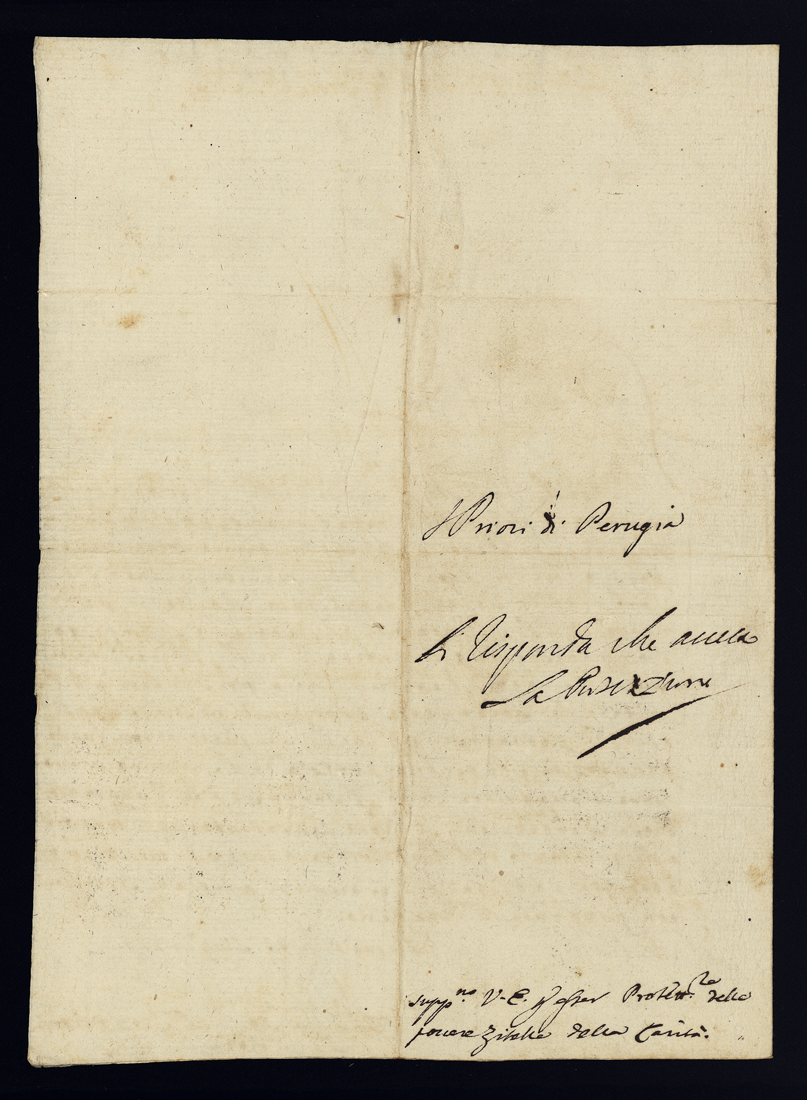 I Priori di Perugia
Si risponda che accetta
La Protezzione
suppno. V. E. p esser Protett.re delle
povere Zitelle della Carità.